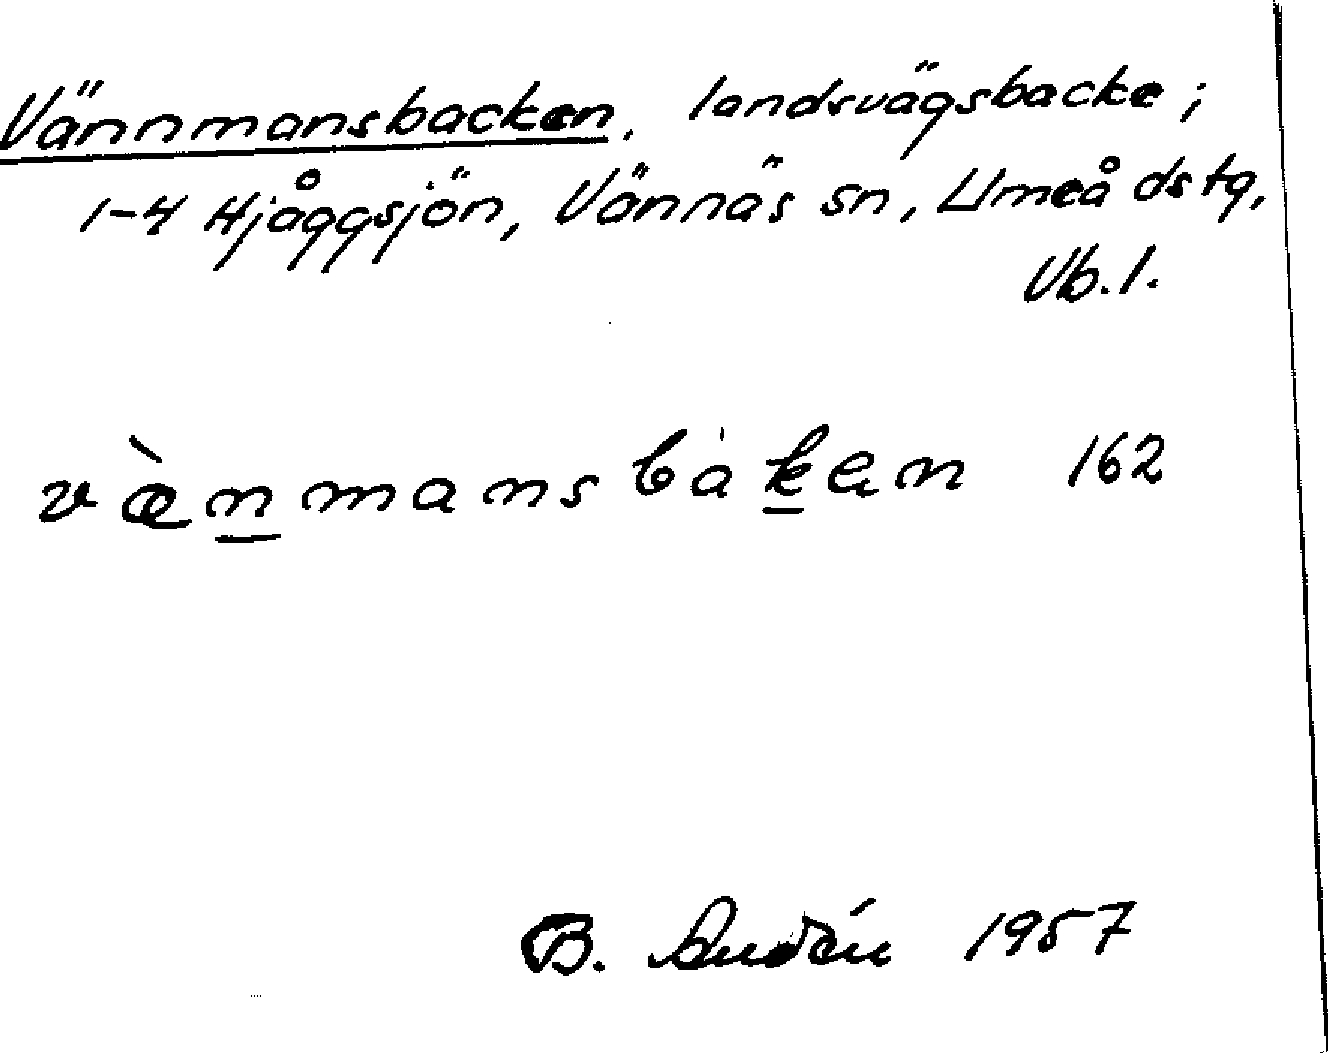 Vännmansbacken, landsvägsbacke;
1-4 Hjåggsjön, Vännäs sn, Umeå dstg,
Vb. l.
væ̀n̲mansbàk̲en 162
B. 1957